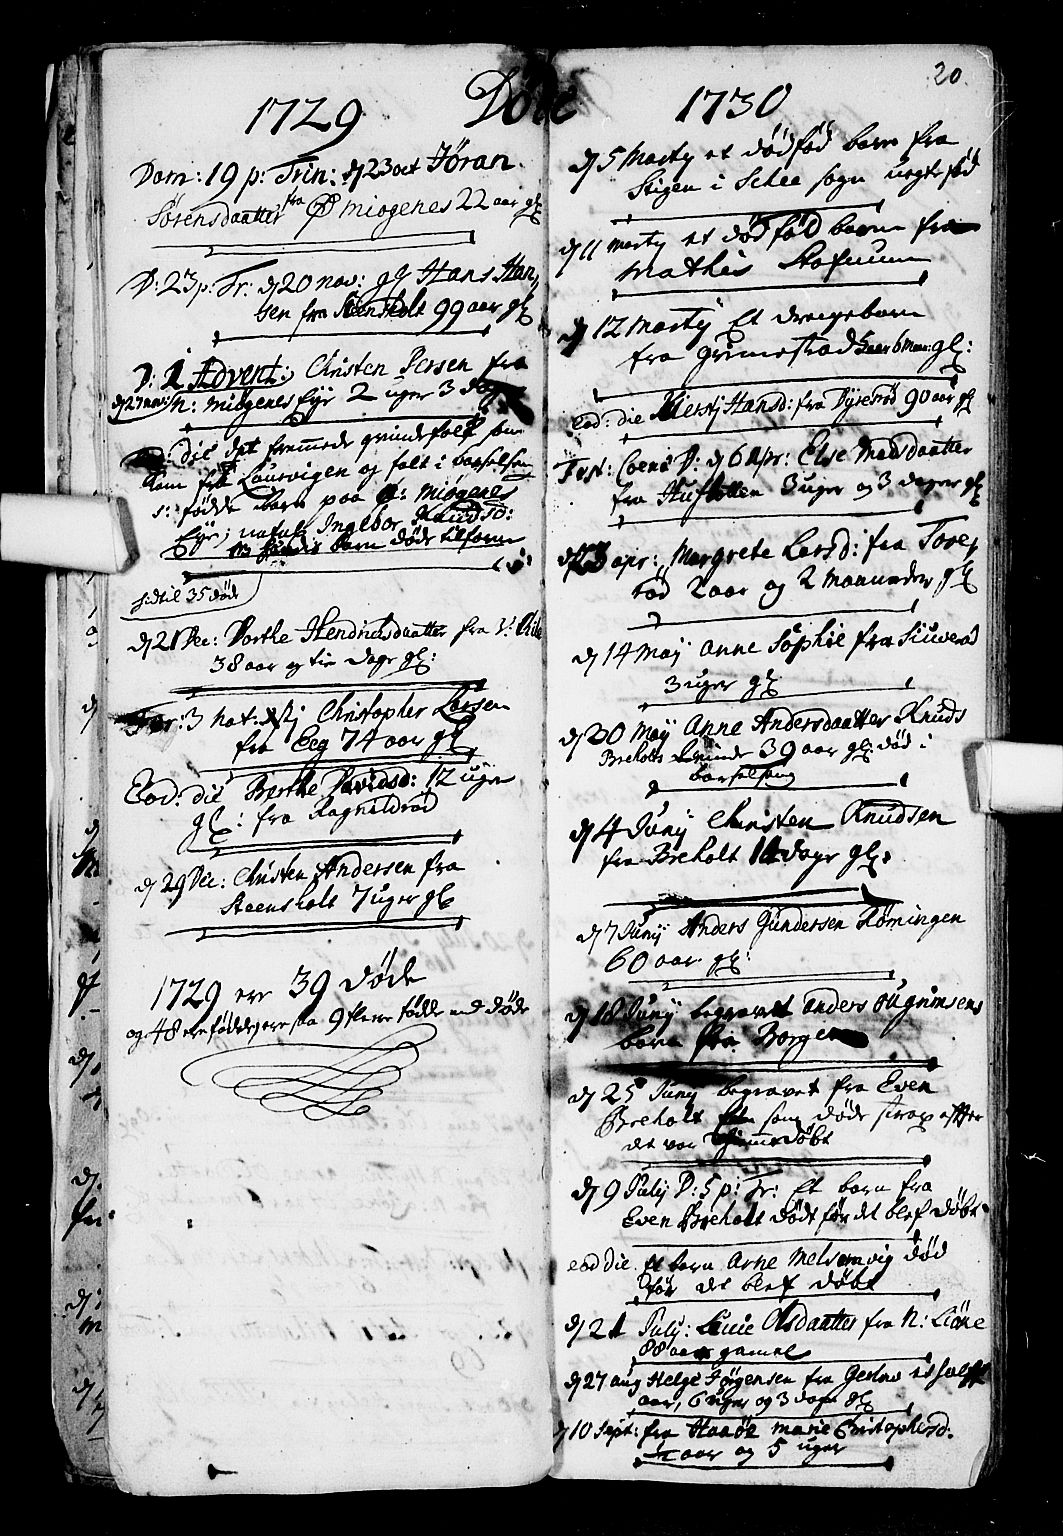 1729 Döde
Dom: 19 p: Trin: dj 23 oct Jöran
Sörensdaatter fra Ø Miögenes 22 aar gl
D: 23 p: Tr: dj 20 nov: gl Hans Han
sen fra Steensholt 99 aar gl
D: 1 Advent: Christen Persen fra
dj 27 nov: N: Miögenes Eyr 2 uger 3 dag
die det fremmede qvindfolk som
kom fra Laurvigen og falt i barselsen
s: födde barn paa Miögenes
Eyr; nafnl Ingebor Knudsd:
barn döde tilforn
hidtil 35 död
dj 21 Dec: Dorthe Hendrichsdaatter fra V:
38 aar og tie dage gl:
3 nat: Christopher Larsen
fra Eeg 74 aar gl
Eod: die Berthe Davidsd: 12 uger
gl: fra Ragneldröd
dj 29 Dec: Christen Andersen fra
Steensholt 7 uger gl
1729 ere 39 döde
og 48 ere födde, ere saa 9 flere födde end döde
20
1730
dj 5 Marty et dödföd barn fra
Stigen i Schee sogn
dj 11 Marty et död föd barn fra
Mathis Stofmum
dj 12 Marty Et drengebarn
fra Grimestad 6 gl:
Eod: die Kiersti Hansd: fra Dyreröd 90 aar gl
Fest: Coena D: dj 6 Apr: Else Madsdaatter
fra Husholten 3 uger og 3 dager gl
dj 23 apr: Margrete Larsd: fra Tore
röd 2 aar og 2 maaneder gl
dj 14 May Anne Sophie fra Siuveröd
3 uger gl
dj 20 May Anne Andersdaatter Knuds
Breholts qvinde 39 aar gl: död i
barselseng
dj 4 Juny Christen Knudsen
fra Breholt 14 dage gl:
dj 7 Juny Anders Gundersen Röningen
60 aar gl:
dj 18 Juny begravet anders Pilgrimsens
barn fra Borgen
dj 25 Juny begravet fra Even
Breholt som döde strax efter
det var hiemmedöbt
dj 9 July D: 5 p: Tr: Et barn fra
Even Breholt död för det blef döbt
eod die et barn Arne Melsomvig död
för det blef döbt
dj 21 July: Lucie Olsdaatter fra N: Liöne
88 aar gamel
dj 27 aug Helge Jörgensen fra et half
aar, 6 uger og 3 dage gl
dj 10 Sept: fra Haaöe Marie Christophersd:
aar og 5 uger